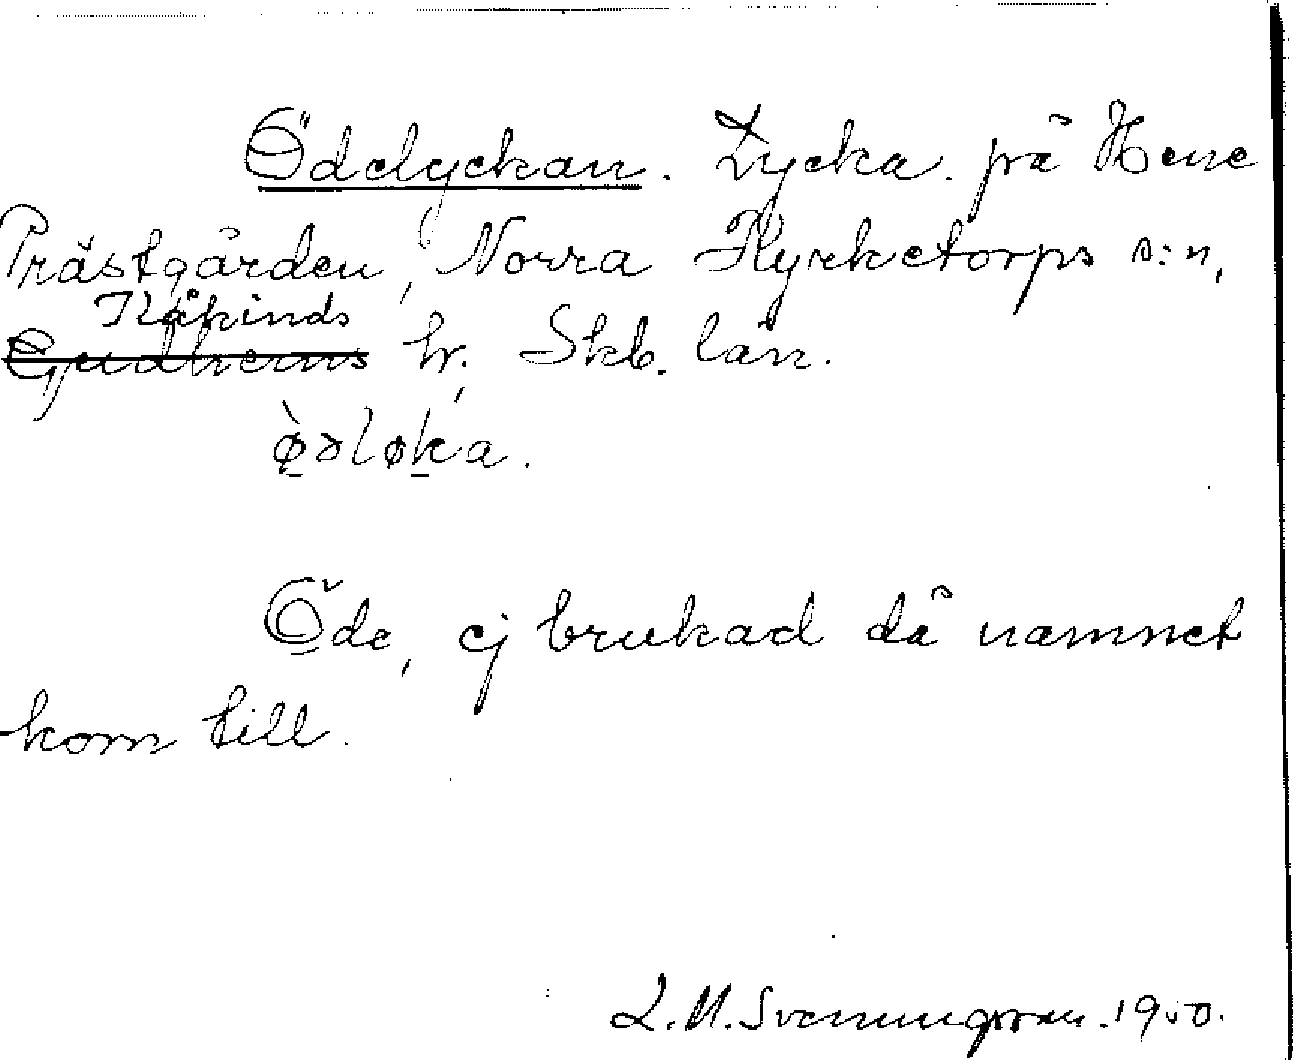 Ödelyckan. Lycka på Hene
Prästgården, Norra Kyrketorps s:n,
Kåkinds
Gudhems hr, Skb. län.
ø̀əløka.
Öde, ej brukad då namnet
kom till.
L.M. Svenungsson. 1950.